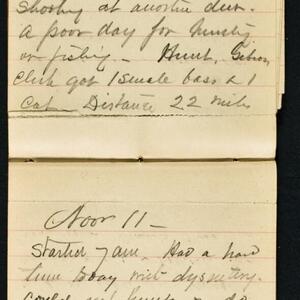 shooting at another deer.
A poor day for hunting
or fishing. - Hunt, Gibson
Click got 1 small bass & 1
Cat - Distance 22 miles
Nov 11 -
Started 7 am. Had a hard
time today with dysentery.
could not